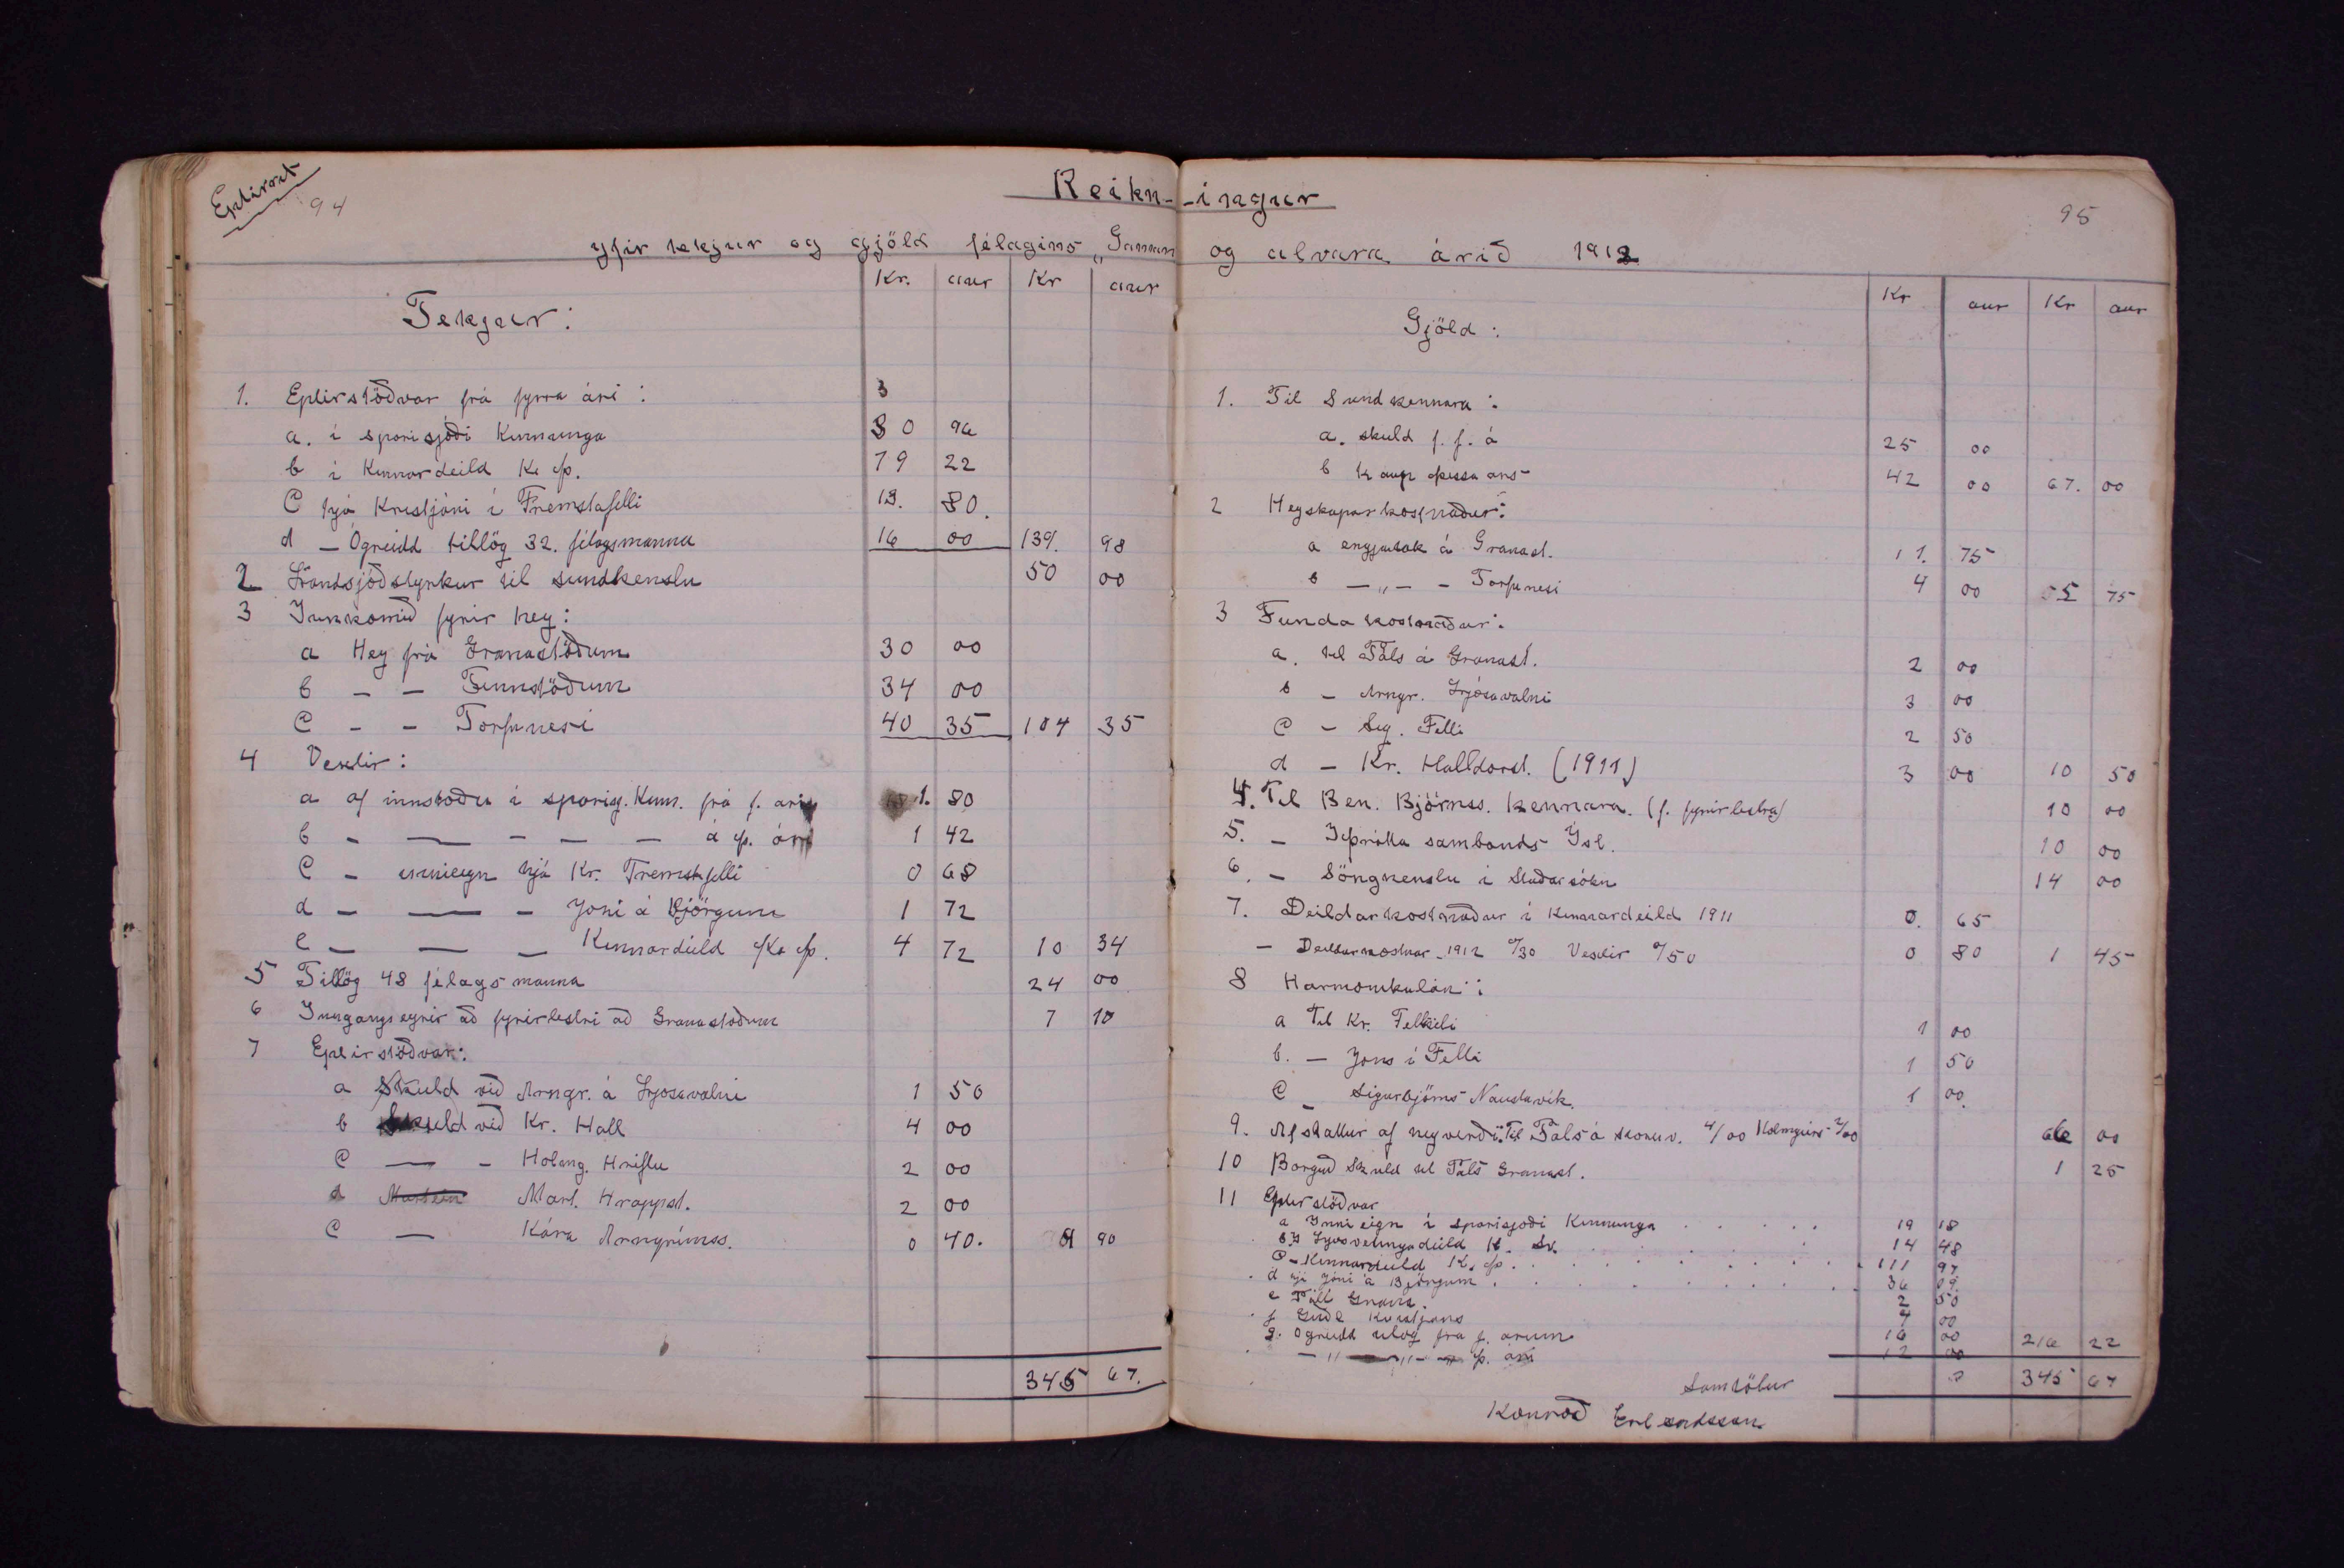 Eptirrit
94
Reikn- -ingur
95
yfir tekjur og gjöld félagins „Gaman og alvara árið 1912
Kr. aur Kr aur
Tekjur:
1. Eptirstöðvar frá fyrra ári:
a. í sparisjóði Kinnunga 30 96
b í Kinnardeild K. Þ. 79 22
C hjá Kristjáni í Fremstafelli 13. 80.
d — Ógreidd tillög 32. félagsmanna 16 00 139. 98
2 Landsjóðstyrkur til sundkenslu 50 00
3 Innkomið fyrir hey:
a Hey frá Granastöðum 30 00
b — — Finnstöðum 34 00
C - - Torfunesi 40 35 104 35
4 Vextir:
a af innstoðu í sparisj. Kinn. frá f. ári 1. 80
b - — - — — á þ. ári 1 42
C - innieign hjá Kr. Fremstafelli 0 68
d — — - Jóni á Björgum 1 72
e — — — Kinnardeild K. Þ. 4 72 10 34
5 Tillög 48 félagsmanna 24 00
6 Inngangseyrir að fyrirlestri að Granastöðum 7 10
7 Eptirstöðvar:
a Skuld við Arngr. á Ljósavatni 1 50
b Skuld við Kr. Hall 4 00
C — - Holmg. Hriflu 2 00
d Mart. Hrappst. 2 00
e — Kára Arngrímss. 0 40. 9 90
345 67.
Kr aur Kr aur
Gjöld:
1. Til Sundkennara:
a. skuld f. f. á 25 00
b kaup þessa árs 42 00 67. 00
2 Heyskaparkostnaður:
a engjatak á Granast. 11. 75
b — „ — - Torfunesi 4 00 15 75
3 Fundakostnaður:
a. til Páls á Granast. 2 00
b — Arngr. Ljósavatni 3 00
C — Sig. Felli 2 50
d — Kr. Halldorst. (1911) 3 00 10 50
4. Til Ben. Björnss. kennara. (f. fyrirlestra) 10 00
5. — Iþrótta sambands Ísl. 10 00
6. — Söngkenslu í Staðarsókn 14 00
7. Deildarkostnaður í Kinnardeild 1911 0. 65
— Deildarkostnar. 1912 0/30 Vextir 0/50 0 80 1 45
8 Harmonikulán:
a Til Kr. Fellseli 1 00
b. — Jons í Felli 1 50
C — Sigurbjörns Naustavík. 1 00.
9. Afsláttur af heyverði. Til Páls á 4/00 Holmgeirs 2/00 6 00
10 Borguð skuld til Páls Granast. 1 25
11 Eptirstöðvar
a Inni eign í sparisjóði Kinnunga . . . . . 19 18
b. Í Ljósvetningadeild K. Sv. . . . . 14 48
C - Kinnardeild K. Þ. . . . . . . . 111 97
d hjá Jóni á Björgum . . . . . . . 36 09
e Páll Grana. 2 50
f Kristjáns 4 00
g. Ogreidd tilög frá f. árum 16 00 216 22
— „ — „ — þ. ári 12 00
Samtölur 345 67
Konrað Erlendsson